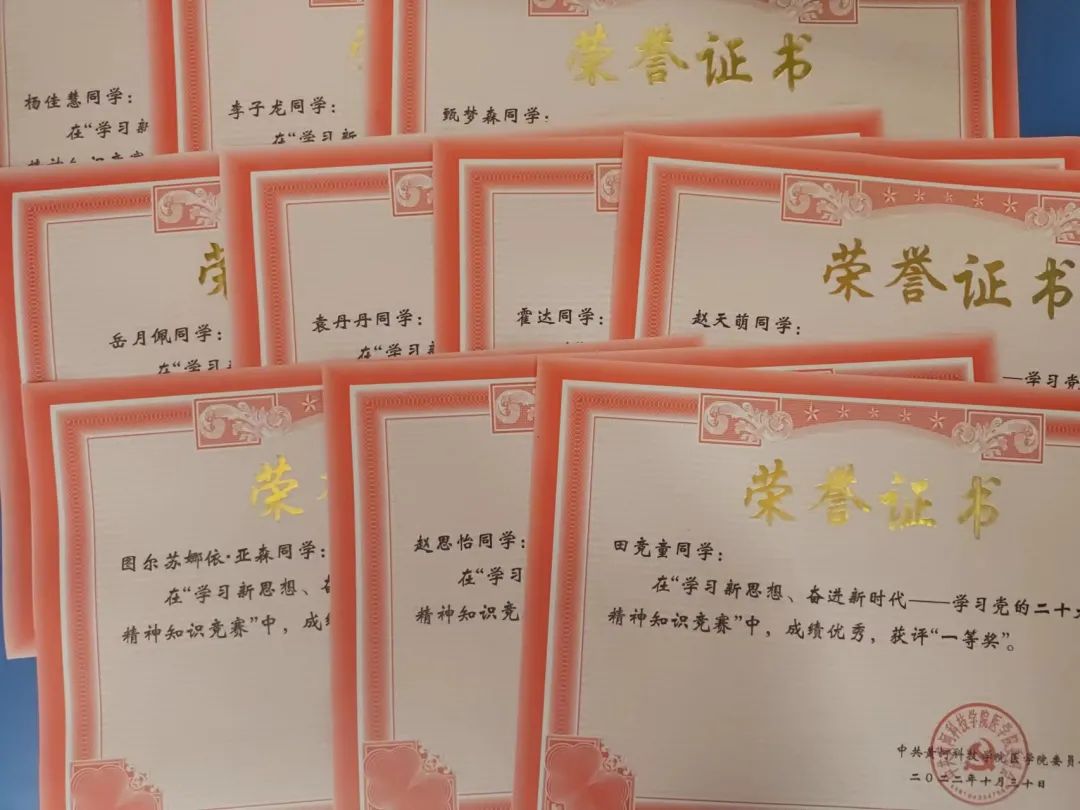 杨佳慧同学：
在“学习新
精神知识竞赛
李子龙同学：
在“学习新
荣誉证书
甄梦森同学：
荣
岳月佩同学：
在“学
袁丹丹同学：
在“学习新
霍达同学：
荣誉证书
赵天萌同学：
——学习党
荣
图尔苏娜依·亚森同学：
在“学习新思想、奋
精神知识竞赛”中，成绩
赵思怡同学：
在“学习
精神知识竞赛
荣誉证书
田竞童同学：
在“学习新思想、奋进新时代——学习党的二十大
精神知识竞赛”中，成绩优秀，获评“一等奖”。
中共黄河科技学院医学院委员
二〇二二年十月三十日